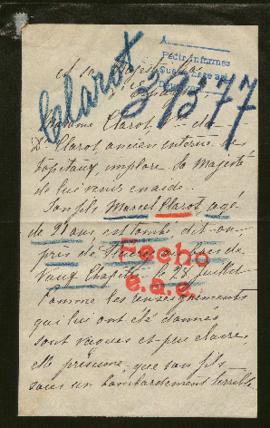 Pedir informes
Clarot
39377
Madame Clarot,
Dr Clarot ancien interne
hôpitaux implore sa majesté
de lui venir en aide.
Son fils Marcel Clarot, agé
de 21 ans est tombé, dit-on
près de
Hecho
Vaux Chapitre le 28 juillet
e.a.e.
Comme les renseignements
qui lui ont été donnés
sont vagues et peu clairs,
elle présume, que son fils
sous un bombardement terrible